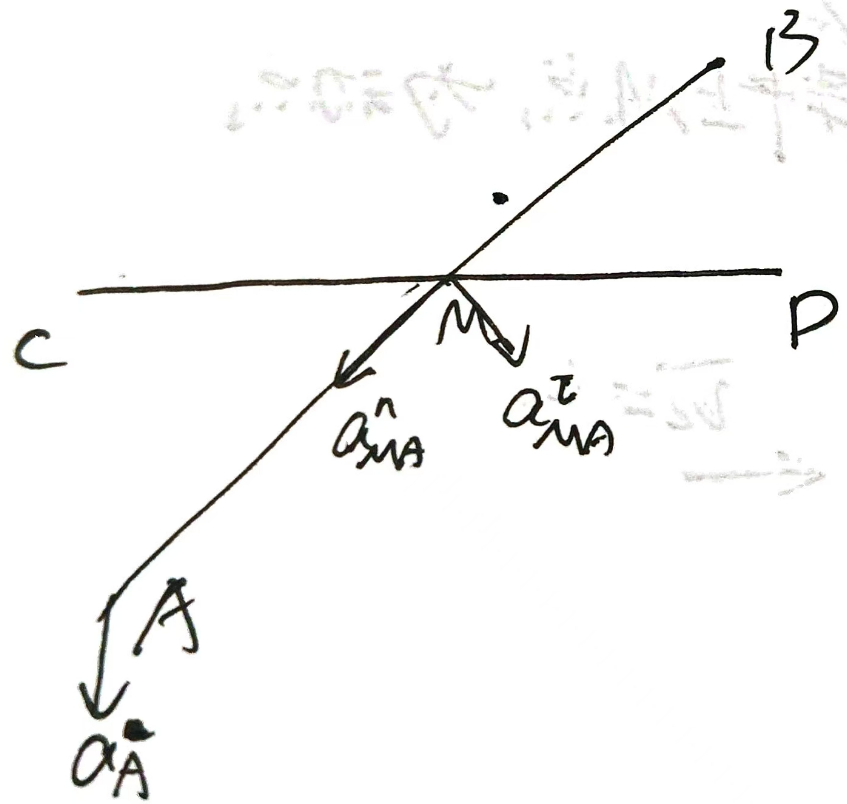 B
C
M
D
a^n_{MA}
a^τ_{MA}
A
a_A